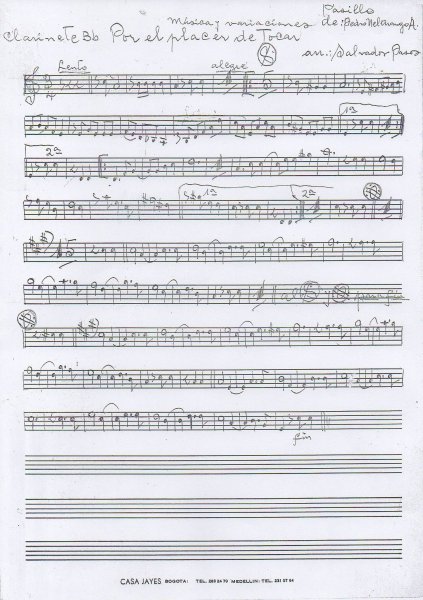 Pasillo
Musica y variaciones de: Pedro Nel
Clarinete Bb Por el placer de Tocar
arr.: Salvador
Lento
alegre
1ª
2ª
1ª
2ª
para fin
fin
CASA JAYES BOGOTA: TEL. MEDELLIN: TEL. 231 57 64